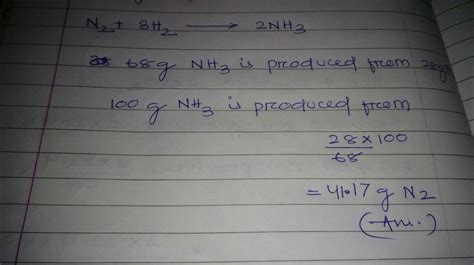 N2 + 3H2 → 2NH3
68g NH3 is produced from 28g
100 g NH3 is produced from
28 x 100
68
= 41.17 g N2
(Ans.)